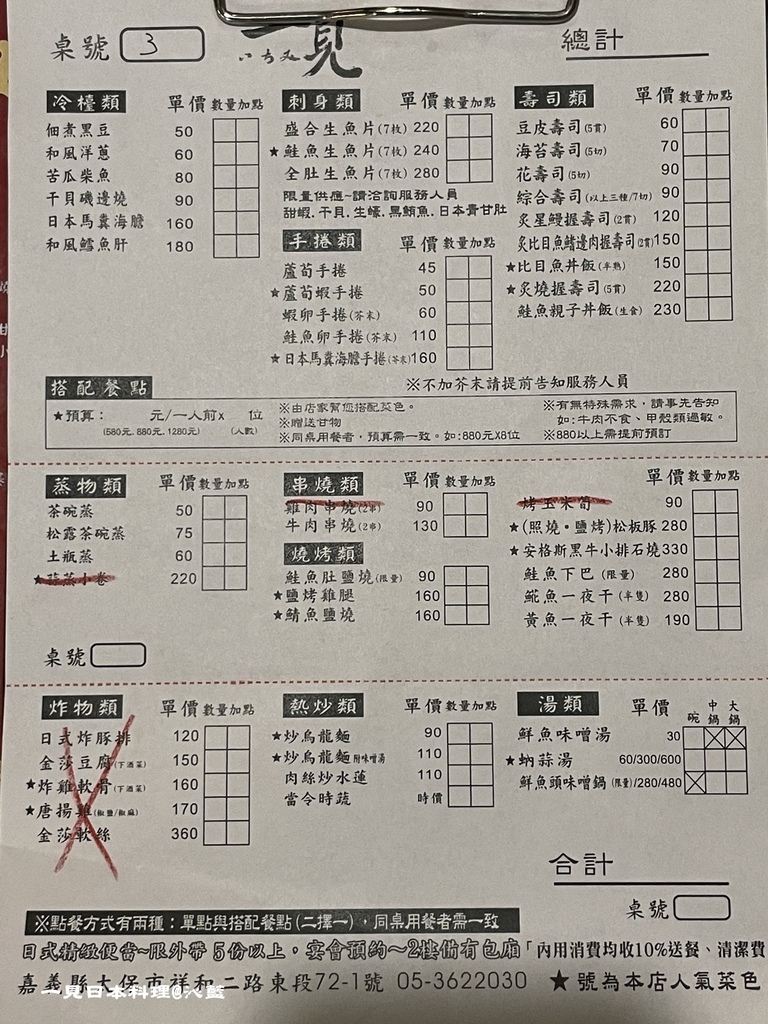 桌號 3
一見
いちみ
總計
冷檯類 單價 數量 加點
佃煮黑豆 50
和風洋蔥 60
苦瓜柴魚 80
干貝磯邊燒 90
日本馬糞海膽 160
和風鱈魚肝 180
刺身類 單價 數量 加點
盛合生魚片(7枚) 220
★鮭魚生魚片(7枚) 240
全肚生魚片(7枚) 280
限量供應~請洽詢服務人員
甜蝦.干貝.生蠔.黑鮪魚.日本青甘魽
手捲類 單價 數量 加點
蘆筍手捲 45
★蘆筍蝦手捲 50
蝦卵手捲(芥末) 60
鮭魚卵手捲(芥末) 110
★日本馬糞海膽手捲(芥末) 160
壽司類 單價 數量 加點
豆皮壽司(5貫) 60
海苔壽司(5切) 70
花壽司(5切) 90
綜合壽司(以上三種/7切) 90
炙星鰻握壽司(2貫) 120
炙比目魚鰭邊肉握壽司(2貫) 150
★比目魚丼飯(半熟) 150
★炙燒握壽司(5貫) 220
鮭魚親子丼飯(生食) 230
搭配餐點
※不加芥末請提前告知服務人員
★預算： 元/一人前x 位
(580元, 880元, 1280元) (人數)
※由店家幫您搭配菜色。
※贈送甘物
※同桌用餐者，預算需一致。如:880元X8位
※有無特殊需求，請事先告知
如:牛肉不食、甲殼類過敏。
※880以上需提前預訂
蒸物類 單價 數量 加點
茶碗蒸 50
松露茶碗蒸 75
土瓶蒸 60
★蒜蒸小卷 220
桌號
串燒類 單價 數量 加點
雞肉串燒(2串) 90
牛肉串燒(2串) 130
燒烤類
鮭魚肚鹽燒(限量) 90
★鹽烤雞腿 160
★鯖魚鹽燒 160
單價 數量 加點
烤玉米筍 90
★(照燒・鹽烤)松板豚 280
★安格斯黑牛小排石燒 330
鮭魚下巴(限量) 280
鯥魚一夜干(半隻) 280
黃魚一夜干(半隻) 190
炸物類 單價 數量 加點
日式炸豚排 120
金莎豆腐(下酒菜) 150
★炸雞軟骨(下酒菜) 160
★唐揚雞(椒鹽/椒麻) 170
金莎軟絲 360
熱炒類 單價 數量 加點
★炒烏龍麵 90
★炒烏龍麵附味噌湯 110
肉絲炒水蓮 110
當令時蔬 時價
湯類 單價 碗 中鍋 大鍋
鮮魚味噌湯 30
★蚋蒜湯 60/300/600
鮮魚頭味噌鍋(限量)/280/480
合計
桌號
※點餐方式有兩種：單點與搭配餐點(二擇一)，同桌用餐者需一致
日式精緻便當~限外帶5份以上。宴會預約~2樓備有包廂「內用消費均收10%送餐、清潔費
嘉義縣太保市祥和二路東段72-1號 05-3622030 ★號為本店人氣菜色
一見日本料理@べ藍